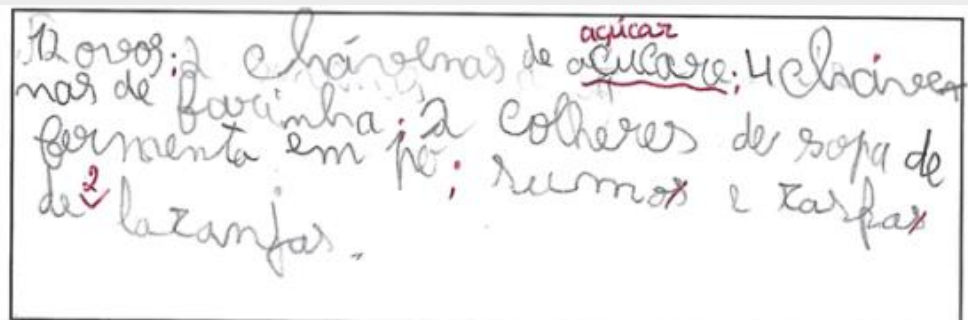 açúcar
12 ovos; 2 chávenas de açucare; 4 cháve
nas de farinha; 2 colheres de sopa de
fermento em pó; sumos e raspas
de 2 laranjas.